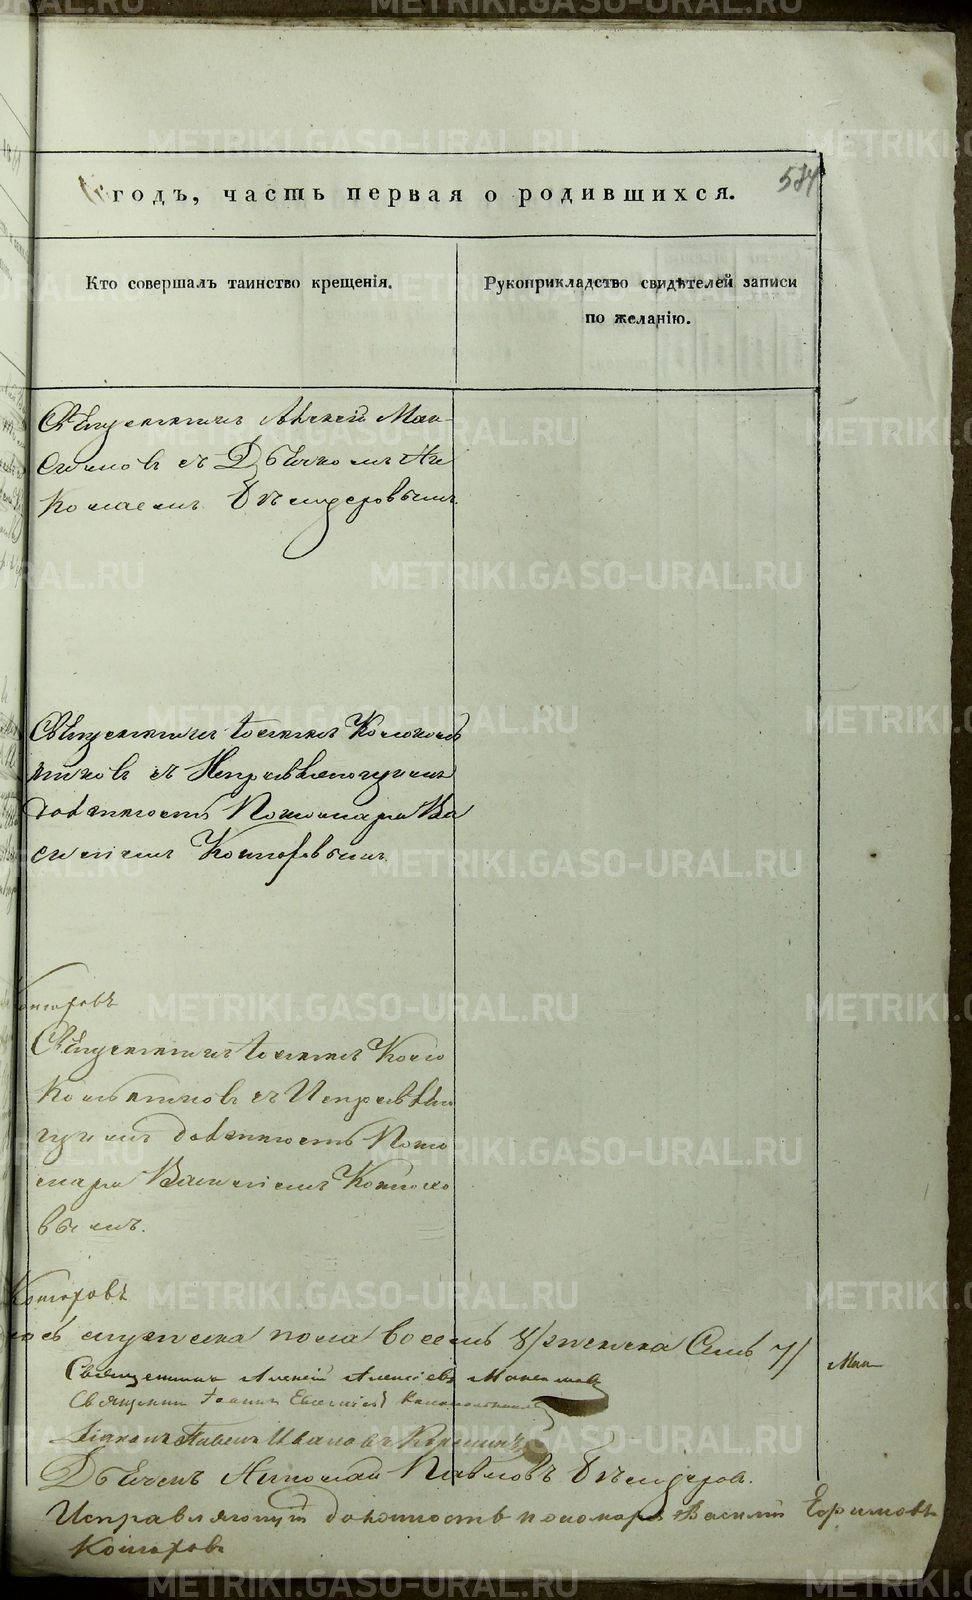 584
годъ, часть первая о родившихся.
Кто совершалъ таинство крещенія.
Рукоприкладство свидѣтелей записи
по желанію.
Священникъ Алексѣй Мак-
симовъ съ Дьячкомъ Ни
колаемъ
Священникъ Іоаннъ Колоколь
никовъ съ Исправляющимъ
должность Пономаря Ва
силіемъ Кошоровымъ
Кошоровъ
Священникъ Іоаннъ Коло
кольниковъ съ Исправляю
щимъ должность Поно
маря Василіемъ
вымъ.
Кошоровъ
мужеска пола восемь 8/ женска Семь 7/
Священникъ Алексій Алексіевъ Максимовъ
Священникъ Іоаннъ Евгеніевъ Колокольниковъ
Діаконъ Павелъ Ивановъ
Дьячекъ Николай Павловъ
Исправляющій должность пономаря Василій Ефимовъ
Кошоровъ
METRIKI.GASO-URAL.RU